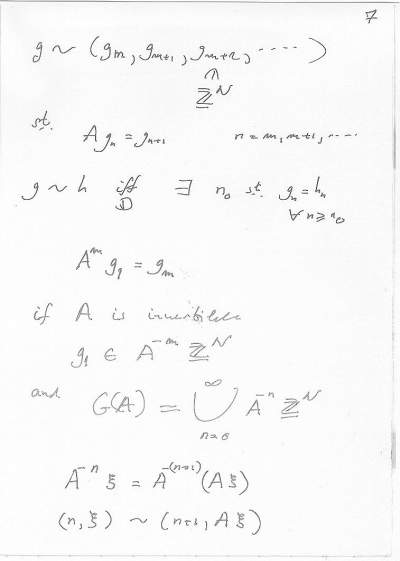 7
g ~ (g_m, g_{m+1}, g_{m+2}, ----)
∩
ℤ^N
st.
A g_n = g_{n+1}    n = m, m+1, ----
g ~ h iff ∃ n_0 st. g_n = h_n
D    ∀ n ≥ n_0
A^m g_1 = g_m
if A is invertible
g_1 ∈ A^{-m} ℤ^N
and G(A) = ⋃_{n=0}^∞ A^{-n} ℤ^N
A^{-n} ξ = A^{-(n+1)} (A ξ)
(n, ξ) ~ (n+1, A ξ)